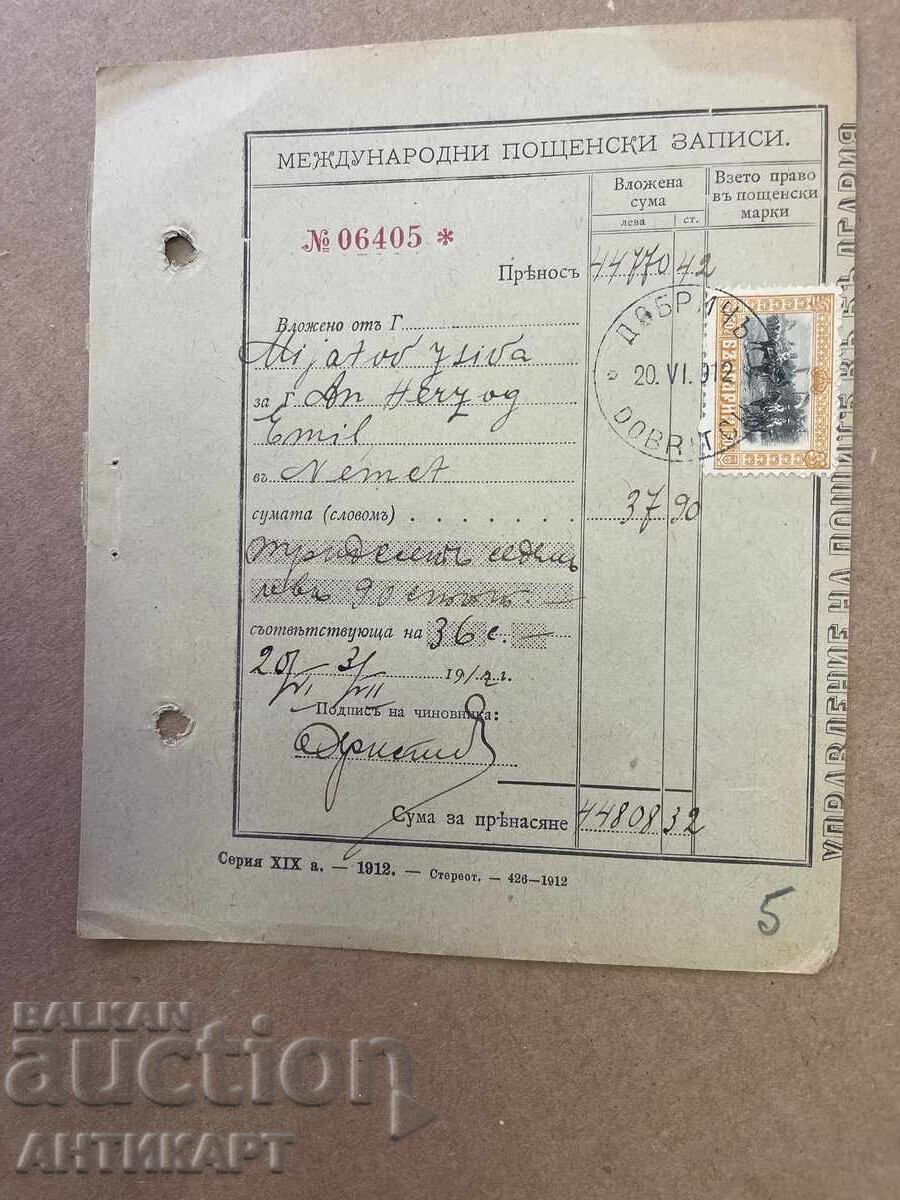 МЕЖДУНАРОДНИ ПОЩЕНСКИ ЗАПИСИ.
Вложена сума
лева ст.
Взето право въ пощенски марки
№ 06405 *
Прѣносъ 44770 42
Вложено отъ Г
Mijatov
за Г. An Herzog
Emil
въ Nemet
сумата (словомъ) 37 90
тридесетъ седемъ
лева 90 стот. —
съотвѣтствующа на 36 с. —
20/VI 3/VII 1912 г.
Подпись на чиновника:
Сума за прѣнасяне 44808 32
Серия XIX а. — 1912. — Стереот. — 426—1912
ДОБРИЧЪ
20. VI. 912
DOBRITCH
УПРАВЛЕНИЕ НА ПОЩИТѢ
5
BALKAN
auction
АНТИКАРТ